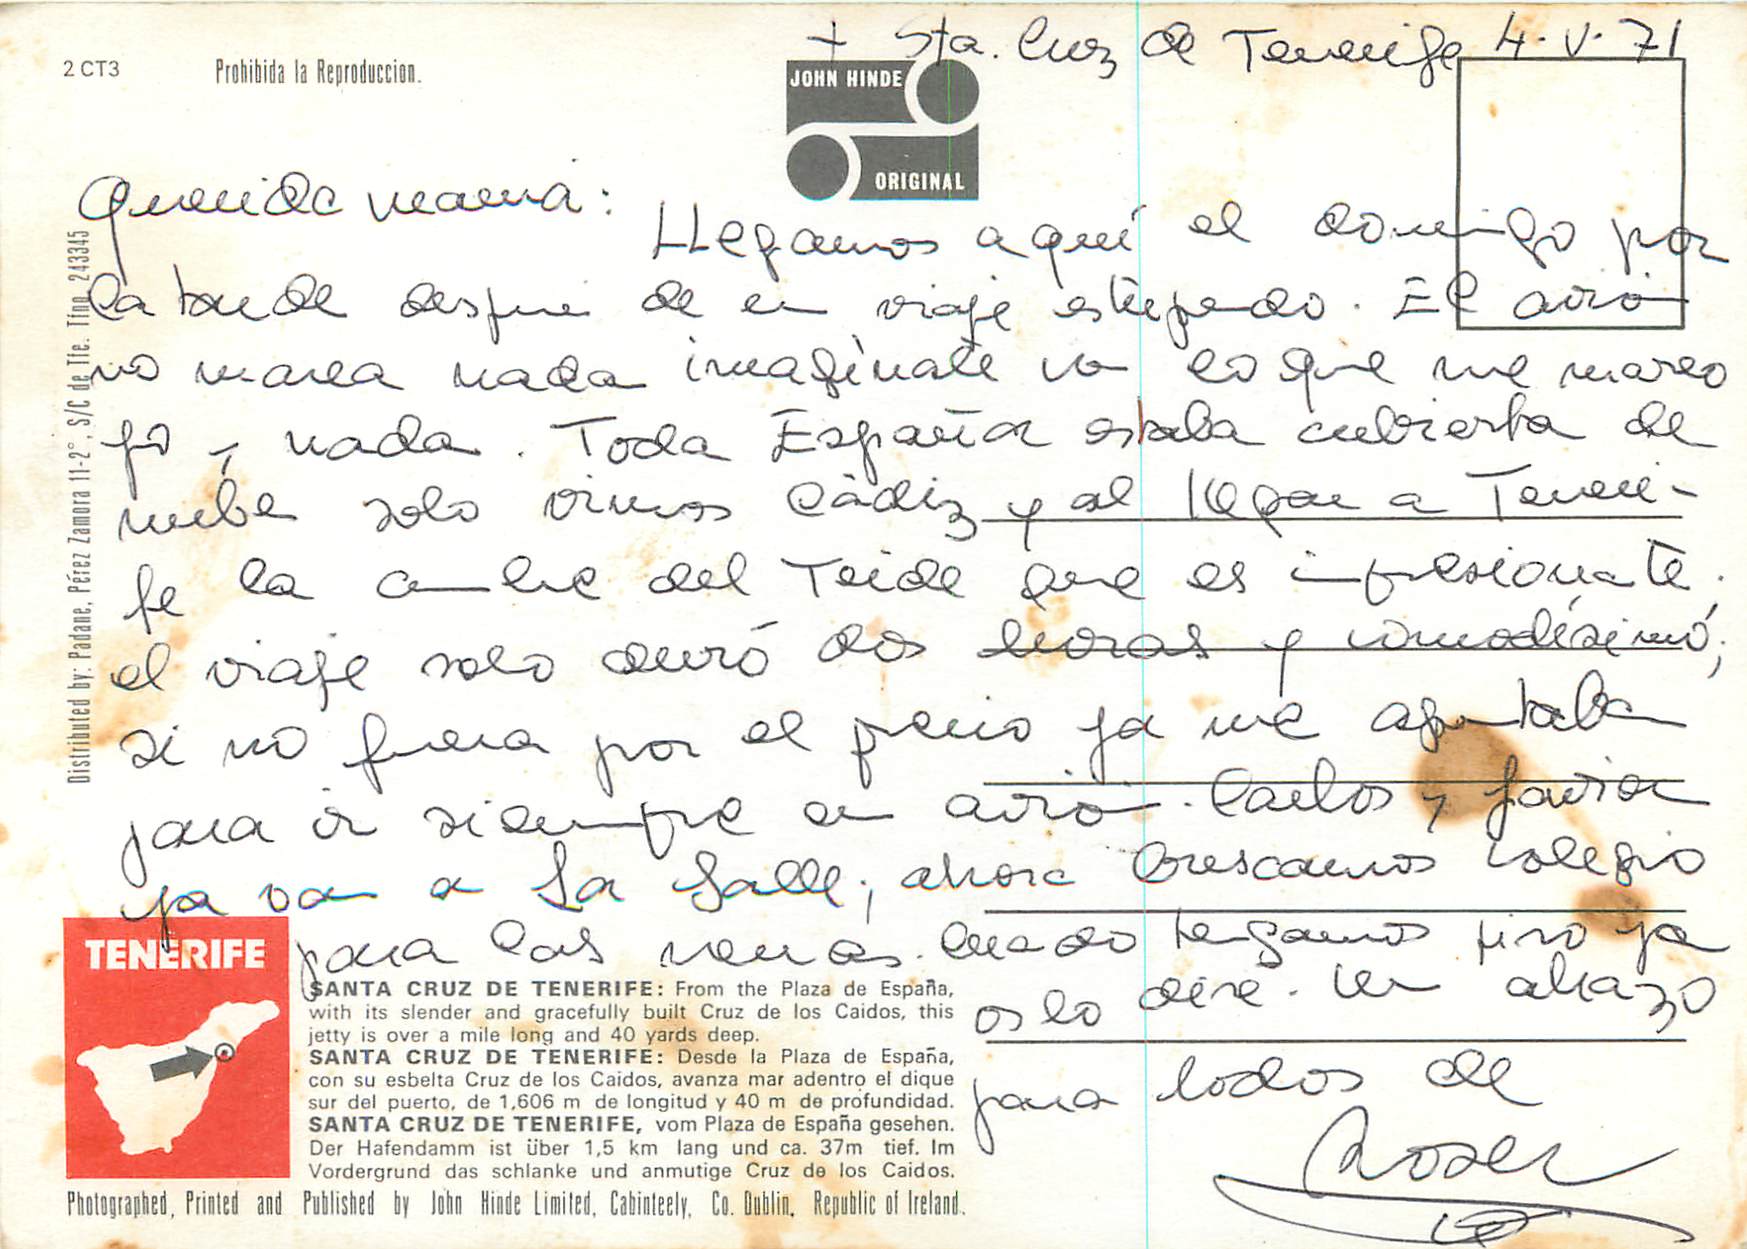 + Sta. Cruz de Tenerife 4-V-71
2 CT3
Prohibida la Reproduccion.
JOHN HINDE
ORIGINAL
Querida mamá:
Llegamos aquí el domingo por
la tarde despues de un viaje estupendo. El avión
no marea nada imaginate con lo que me mareo
yo y nada. Toda España estaba cubierta de
nube solo vimos Cádiz y al llegar a Teneri-
fe la cumbre del Teide que es impresionante,
el viaje solo duró dos horas y comodísimo;
si no fuera por el precio ya me apuntaba
para ir siempre en avión. Carlos y Javier
ya van a La Salle; ahora buscamos colegio
para las nenas. Cuando tengamos piso ya
os lo diré. Un abrazo
para todos de
Roser
Distributed by: Padane, Pérez Zamora 11-2°, S/C de Tfe. Tfno. 243345
TENERIFE
SANTA CRUZ DE TENERIFE: From the Plaza de España,
with its slender and gracefully built Cruz de los Caidos, this
jetty is over a mile long and 40 yards deep.
SANTA CRUZ DE TENERIFE: Desde la Plaza de España,
con su esbelta Cruz de los Caidos, avanza mar adentro el dique
sur del puerto, de 1,606 m de longitud y 40 m de profundidad.
SANTA CRUZ DE TENERIFE, vom Plaza de España gesehen.
Der Hafendamm ist über 1,5 km lang und ca. 37m tief. Im
Vordergrund das schlanke und anmutige Cruz de los Caidos.
Photographed, Printed and Published by John Hinde Limited, Cabinteely, Co. Dublin, Republic of Ireland.